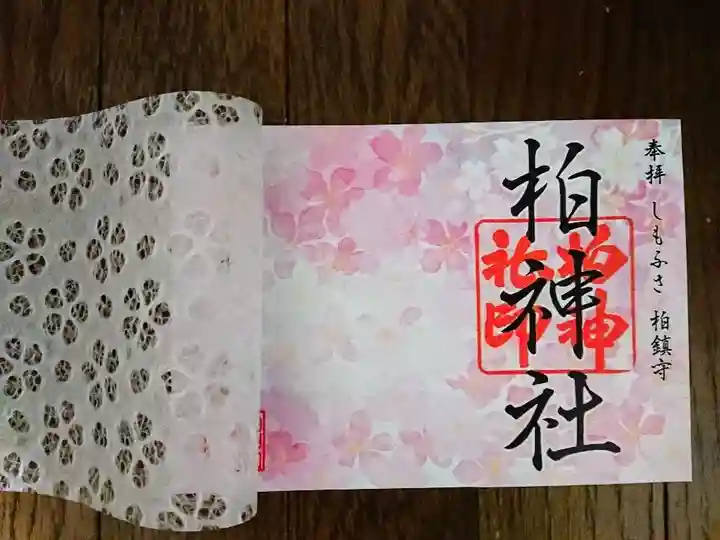 奉拝 しもふさ 柏鎮守
柏神社
柏神
社印